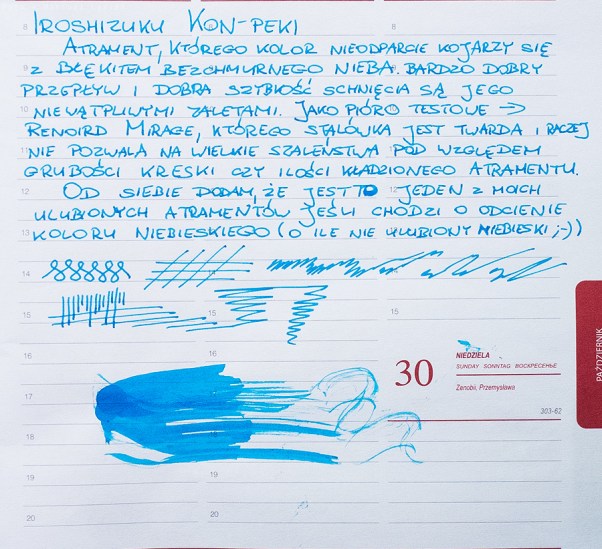 IROSHIZUKU KON-PEKI
ATRAMENT, KTÓREGO KOLOR NIEODPARCIE KOJARZY SIĘ
Z BŁĘKITEM BEZCHMURNEGO NIEBA. BARDZO DOBRY
PRZEPŁYW I DOBRA SZYBKOŚĆ SCHNIĘCIA SĄ JEGO
NIEWĄTPLIWYMI ZALETAMI. JAKO PIÓRO TESTOWE →
RENOIRD MIRAGE, KTÓREGO STALÓWKA JEST TWARDA I RACZEJ
NIE POZWALA NA WIELKIE SZALEŃSTWA POD WZGLĘDEM
GRUBOŚCI KRESKI CZY ILOŚCI KŁADZIONEGO ATRAMENTU.
OD SIEBIE DODAM, ŻE JEST TO JEDEN Z MOICH
ULUBIONYCH ATRAMENTÓW JEŚLI CHODZI O ODCIENIE
KOLORU NIEBIESKIEGO (O ILE NIE ULUBIONY NIEBIESKI ;-))
8
8
9
10
11
12
12
13
14
15
15
16
16
17
18
19
19
20
20
30
NIEDZIELA
SUNDAY SONNTAG ВОСКРЕСЕНЬЕ
Zenobii, Przemysława
303-62
PAŹDZIERNIK